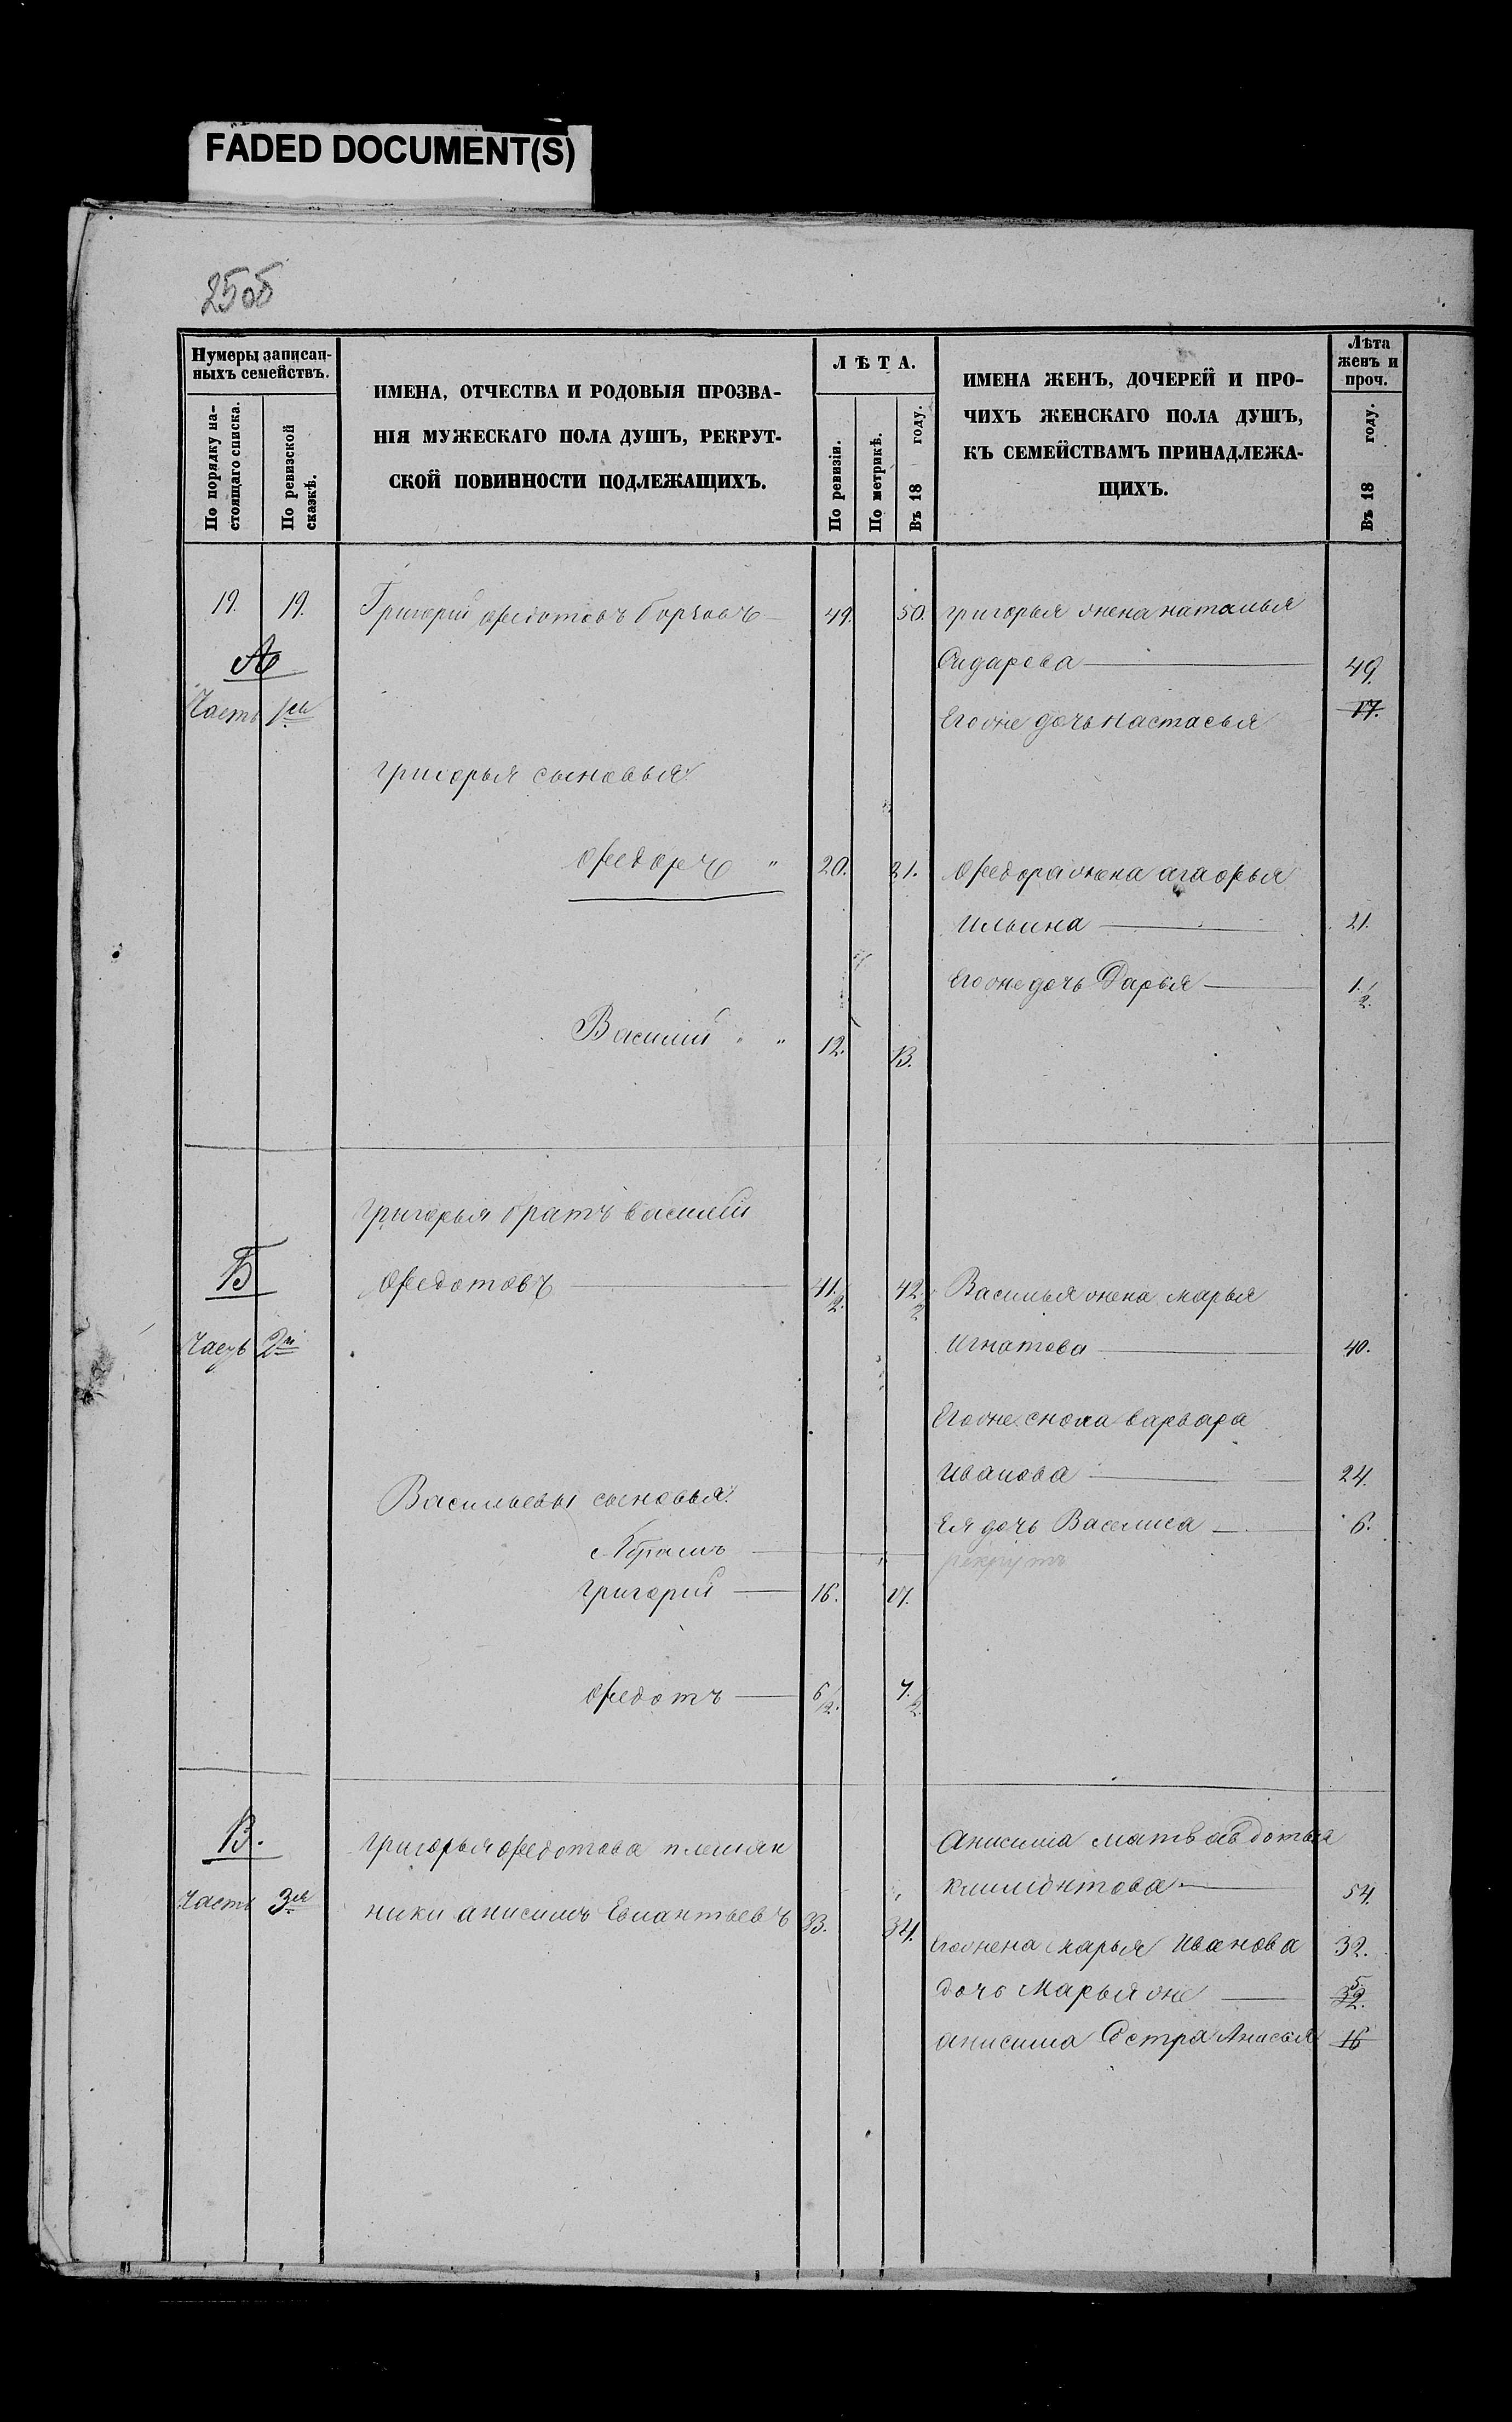 FADED DOCUMENT(S)
25об
Нумеры записан-
ныхъ семействъ.
По порядку на-
стоящаго списка.
По ревизской
сказкѣ.
ИМЕНА, ОТЧЕСТВА И РОДОВЫЯ ПРОЗВА-
НІЯ МУЖЕСКАГО ПОЛА ДУШЪ, РЕКРУТ-
СКОЙ ПОВИННОСТИ ПОДЛЕЖАЩИХЪ.
ЛѢТА.
По ревизіи.
По метрикѣ.
Въ 18 году.
ИМЕНА ЖЕНЪ, ДОЧЕРЕЙ И ПРО-
ЧИХЪ ЖЕНСКАГО ПОЛА ДУШЪ,
КЪ СЕМЕЙСТВАМЪ ПРИНАДЛЕЖА-
ЩИХЪ.
Лѣта
женъ и
проч.
Въ 18 году.
19. 19. Григорий Федотовъ 49. 50. григорья жена наталья
А
Сидарова 49.
Часть 1я Его же дочь настасья 17.
григорья сыновья:
Федоръ " 20. 21. Федора жена агафья
Ильина 21.
Его же дочь Дарья 1/2.
Василий " " 12. 13.
григорья братъ василий
Б
Федотовъ 41/2. 42/2 Василья жена марья
Часть 2я Игнатова 40.
Его же сноха варвара
Иванова 24.
Васильевы сыновья:
Ея дочь Василиса 6.
Абрамъ рекрутъ
григорий 16. 17.
Федотъ 6/2. 7/2
В.
григорья Федотова племян Анисима мать авдотья
Часть 3я Климонтова 54.
ники анисимъ 33. 34.
Его жена марья Иванова 32.
дочь Марья же 32. 5.
анисима Сестра Анисья 16